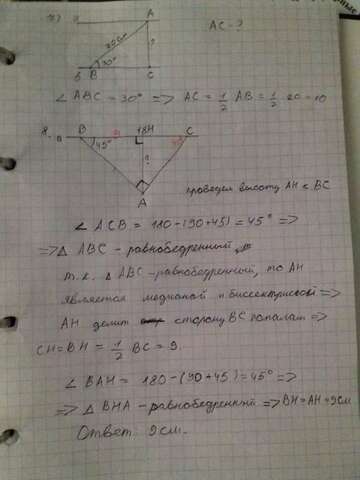 7) a A
AC - ?
20см ?
30°
b B C
∠ ABC = 30° => AC = 1/2 AB = 1/2 · 20 = 10
8. a B 18 H C
45° 45°
?
A
проведем высоту AH к BC
∠ ACB = 180-(90+45) = 45° =>
=> △ ABC - равнобедренный
т.к. △ ABC - равнобедренный, то AH
является медианой и биссектрисой =>
AH делит сторону BC пополам =>
CH = BH = 1/2 BC = 9.
∠ BAH = 180-(90+45) = 45° =>
=> △ BHA - равнобедренный => BH = AH = 9см
Ответ: 9см.